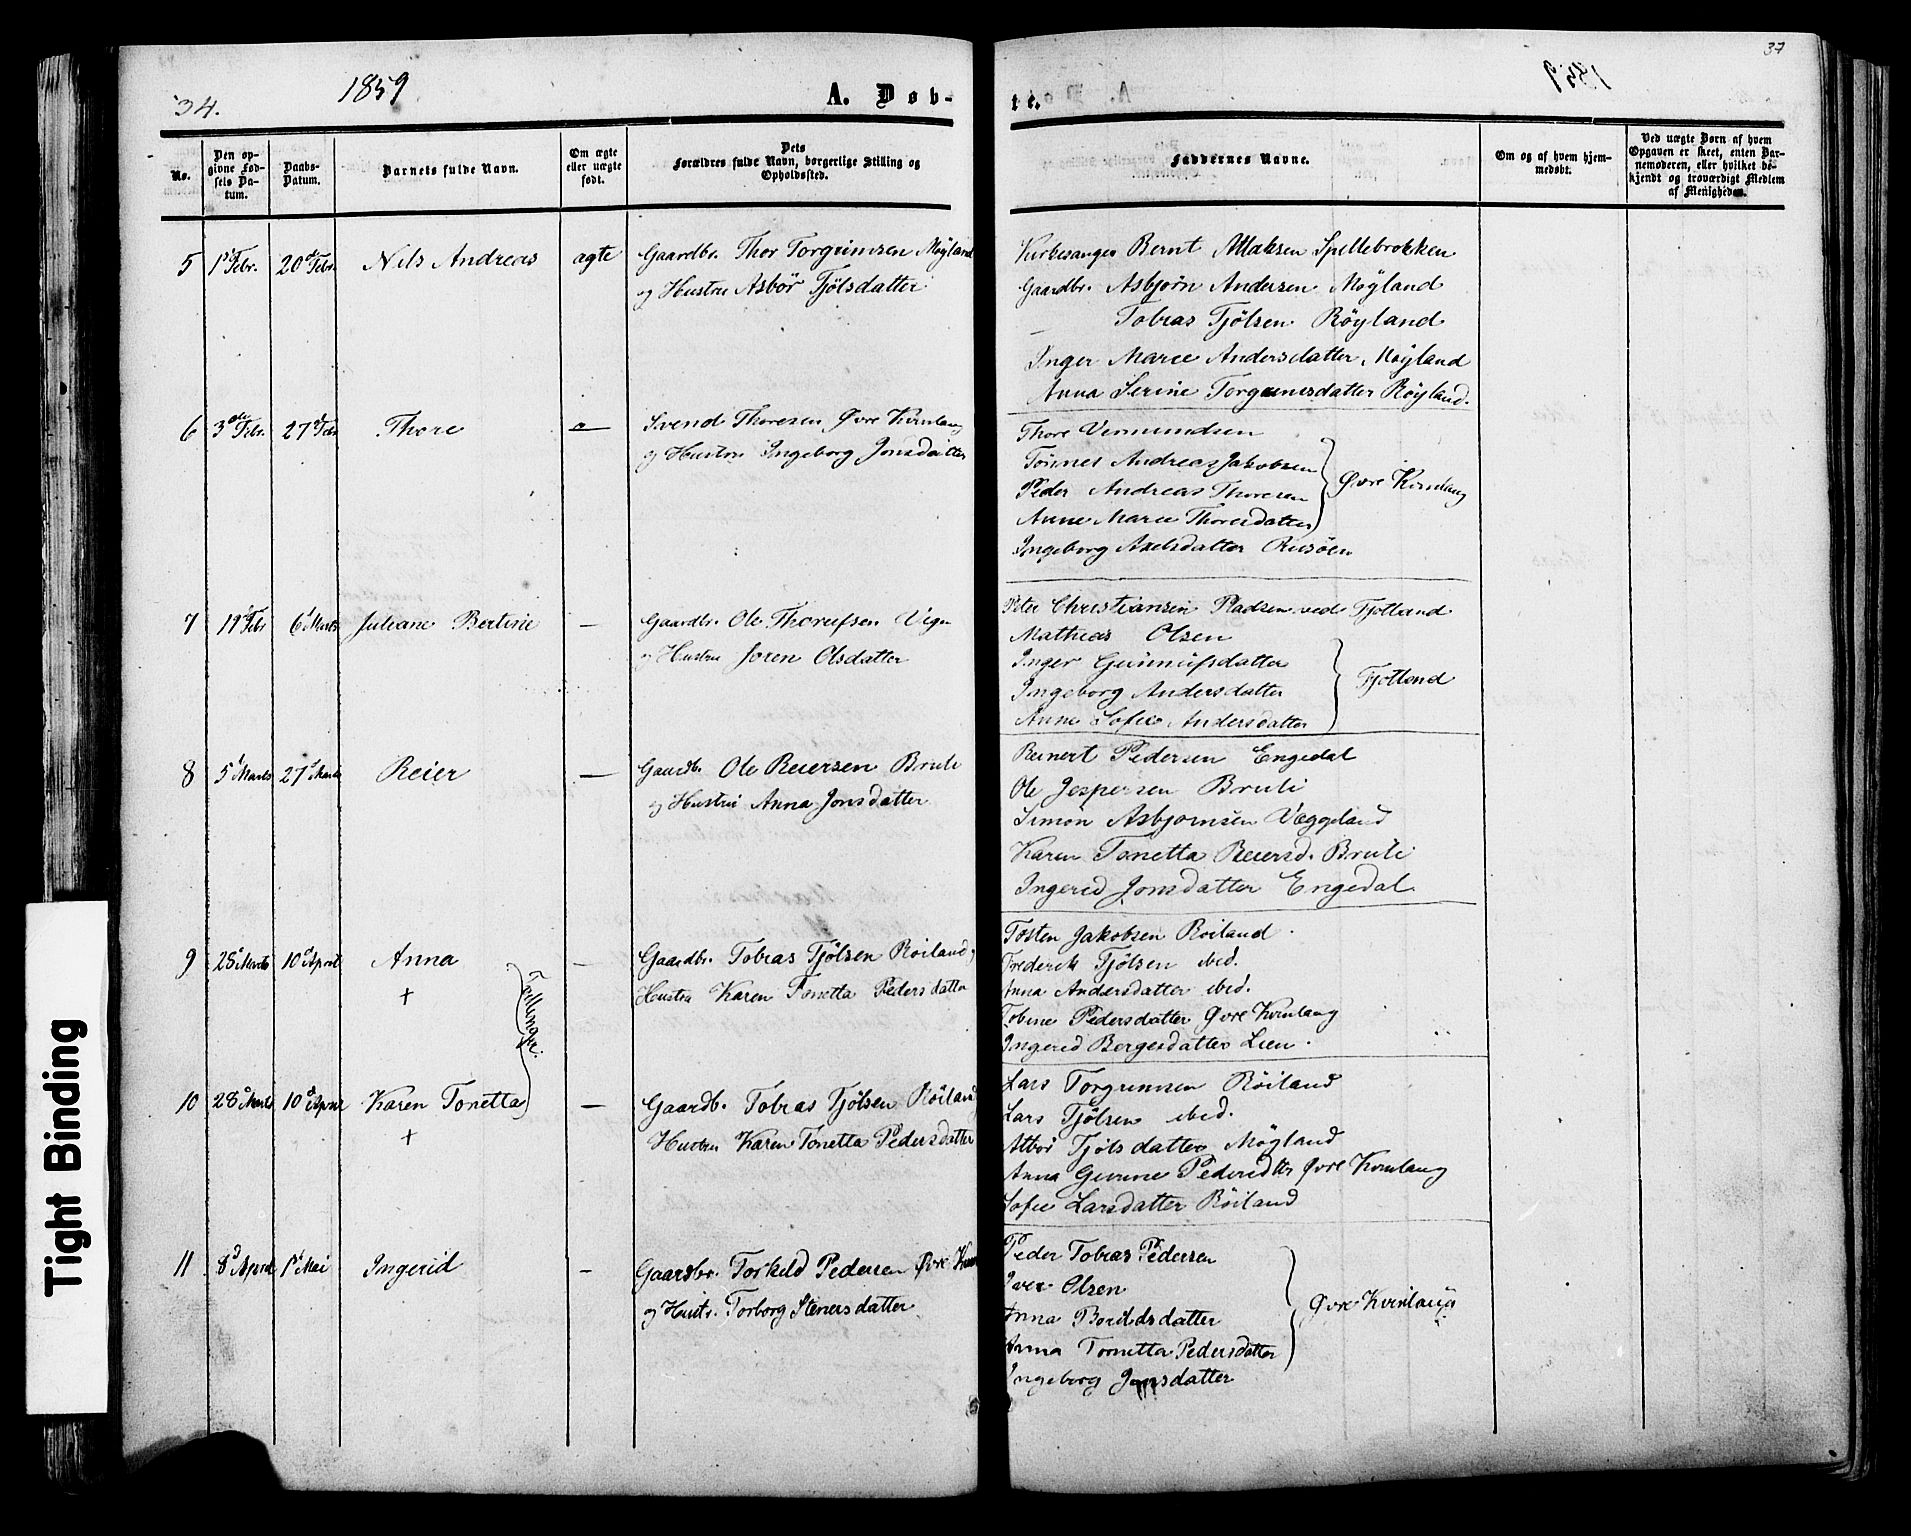 37
34.
1859
A. Døb-
te.
No.
Den op-
givne Fød-
sels Da-
tum.
Daabs-
Datum.
Barnets fulde Navn.
Om ægte
eller uægte
født.
Dets
Forældres fulde Navn, borgerlige Stilling og
Opholdssted.
Faddernes Navne.
Om og af hvem hjem-
medøbt.
Ved uægte Børn af hvem
Opgaven er skeet, enten Bar-
nemoderen, eller hvilket be-
kjendt og troværdigt Medlem
af Menigheden.
5 1ste Febr. 20de Febr. Nils Andreas ægte
Gaardbr. Thor Torgrimsen Møyland
og Hustru Asbør Tjølsdatter
Kirkesanger Bernt Spellebrokken
Gaardbr. Asbjørn Andersen Møgland
— Tobias Tjølsen Røyland
Inger Marie Andersdatter, Møyland
Anna Serine Torgrimsdatter Røyland.
6 3de Febr. 27d Febr Thore —
Svend Thoresen Øvre Kvinlaug
og Hustru Ingeborg Jonsdatter
Thore Vermundsen
Tønnes Andreas Jakobsen
Peder Andreas Thoresen
Anne Marie Thoresdatter
Øvre Kvinlaug
Ingeborg Axelsdatter
7 19d Febr 6d Marts Juliane Bertine —
Gaardbr. Ole Thorufsen
og Hustru Joren Olsdatter
Peter Christiansen Pladsen ved Fjotland
Mathias Olsen
Inger Gunnufsdatter
Ingeborg Andersdatter
Anne Sofie Andersdatter
Fjotland
8 5d Marts 27d Marts Reier —
Gaardb. Ole Reiersen Bruli
og Hustru Anna Jonsdatter
Reinert Pedersen Engedal
Ole Jespersen Bruli
Simon Asbjørnsen Væggeland
Karen Tonetta Reiersd. Bruli
Ingerid Jonsdatter Engedal
9 28d Marts 10d April Anna —
+
Tvillinger.
Gaardbr. Tobias Tjølsen Røiland,
Hustru Karen Tonetta Pedersdatter
Tosten Jakobsen Røiland.
Frederik Tjølsen ibid.
Anna Andersdatter ibid.
Tobine Pedersdatter Øvre Kvinlaug
Ingerid Bergesdatter Lien.
10 28d Marts 10d April Karen Tonetta —
+
Gaardb. Tobias Tjølsen Røiland
Hustru Karen Tonetta Pedersdatter
Lars Torgrimsen Røiland
Lars Tjølsen ibid.
Tjølsdatter Møgland
Anna Gurine Pedersdtr Øvre Kvinlaug
Sofie Larsdatter Røiland
11 8d April 1d Mai Ingerid —
Gaardbr. Torkeld Pedersen Øvre
og Hustr. Torborg Stenersdatter
Peder Tobias Pedersen
Iver Olsen
Anna
Anna Tonetta Pedersdatter
Øvre Kvinlaug
Ingeborg Jonsdatter
Tight Binding